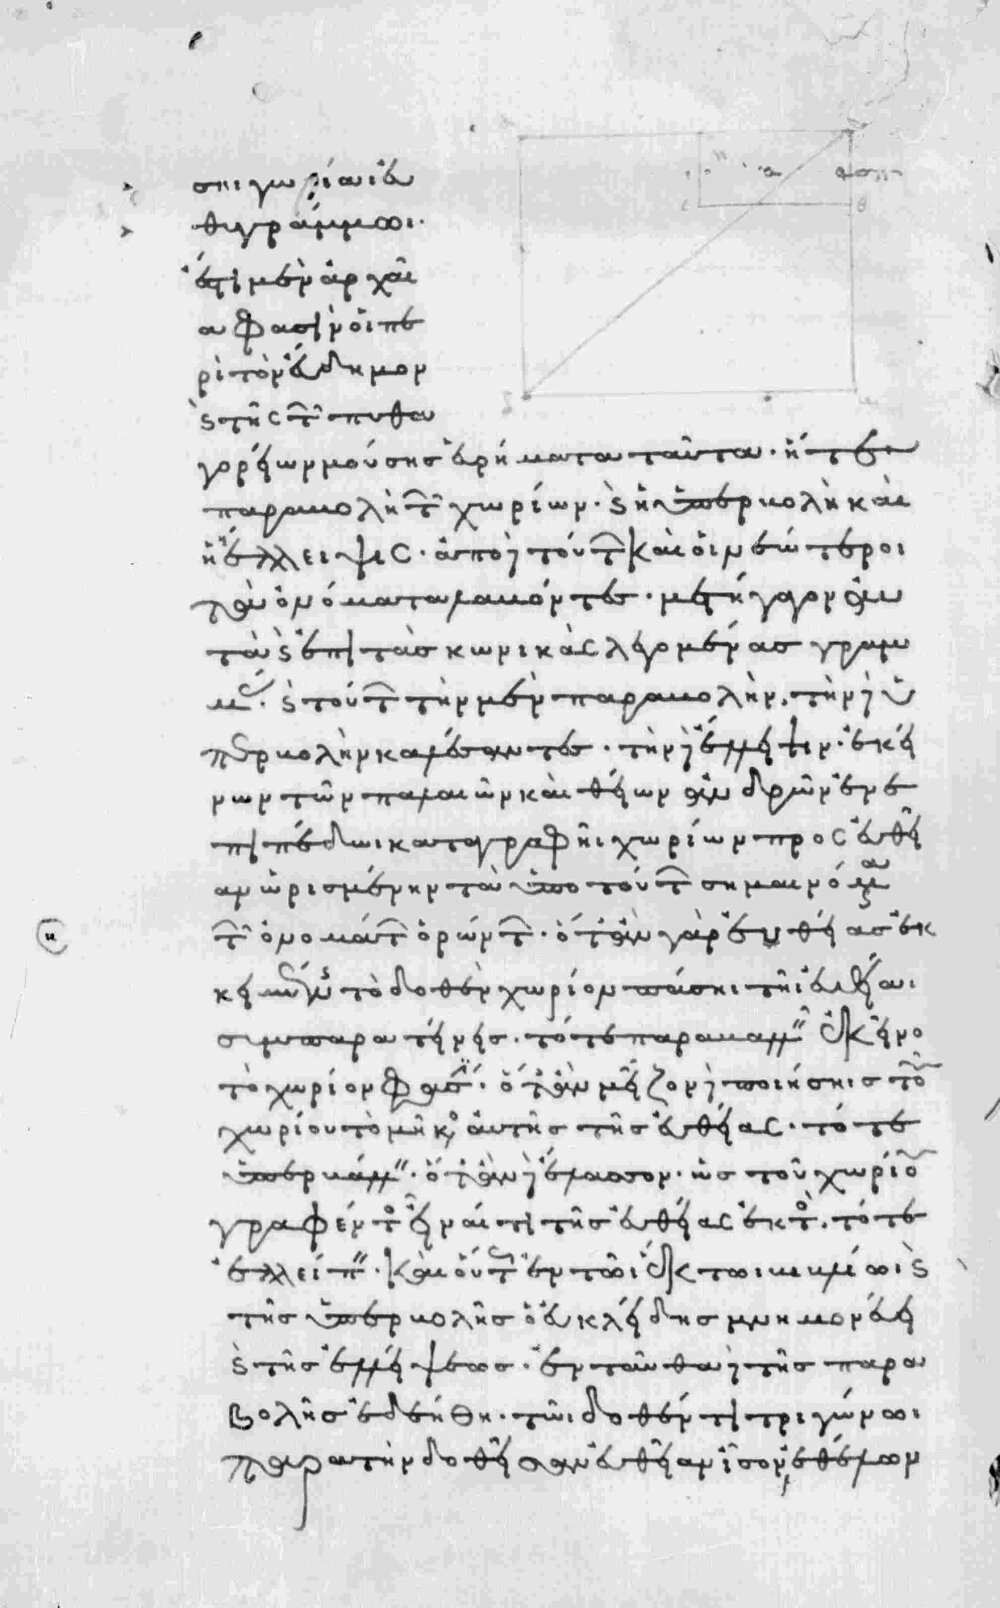 γωνίαι εὐ
θυγράμμωι.
ἔστι μὲν ἀρχαῖ
α φασὶν οἱ πε
ρὶ τὸν εὔδημον
καὶ τῆς τῶν πυθα
γορείων μούσης εὑρήματα ταῦτα· ἥ τε
παραβολὴ τῶν χωρίων· καὶ ἡ ὑπερβολὴ καὶ
ἡ ἔλλειψις· ἀπὸ δὲ τούτων καὶ οἱ νεώτεροι
τὰ ὀνόματα λαβόντες· μετήγαγον αὐ
τὰ καὶ ἐπὶ τὰς κωνικὰς λεγομένας γραμ
μάς· καὶ τούτων τὴν μὲν παραβολὴν, τὴν δὲ ὑ
περβολὴν καλέσαντες· τὴν δὲ ἔλλειψιν· ἐκεί
νων τῶν παλαιῶν καὶ θείων ἀνδρῶν ἐν ἐ
πιπέδωι καταγραφῆι χωρίων πρὸς εὐθεῖ
αν ὡρισμένην τὰ ὑπὸ τούτων σημαινόμενα
τῶν ὀνομάτων ὁρώντων· ὅταν γὰρ εὐθείας ἐκ
κειμένης τὸ δοθὲν χωρίον πάσηι τῆι εὐθείαι
συμπαρατείνης· τότε παραβάλλειν ἐκεῖνο
τὸ χωρίον φασίν· ὅταν μεῖζον δὲ ποιήσηις τοῦ
χωρίου τὸ μῆκος αὐτῆς τῆς εὐθείας· τότε
ὑπερβάλλειν· ὅταν δὲ ἔλασσον· ὡς τοῦ χωρίου
γραφέντος εἶναί τι τῆς εὐθείας ἐκτός· τότε
ἐλλείπειν· καὶ οὕτως ἐν τῶι ἕκτωι βιβλίωι καὶ
τῆς ὑπερβολῆς ὁ εὐκλείδης μνημονεύει
καὶ τῆς ἐλλείψεως· ἐνταῦθα δὲ τῆς παρα
βολῆς ἐδεήθη· τῶι δοθέντι τριγώνωι
παρὰ τὴν δοθεῖσαν εὐθεῖαν ἴσον ἐθέλων